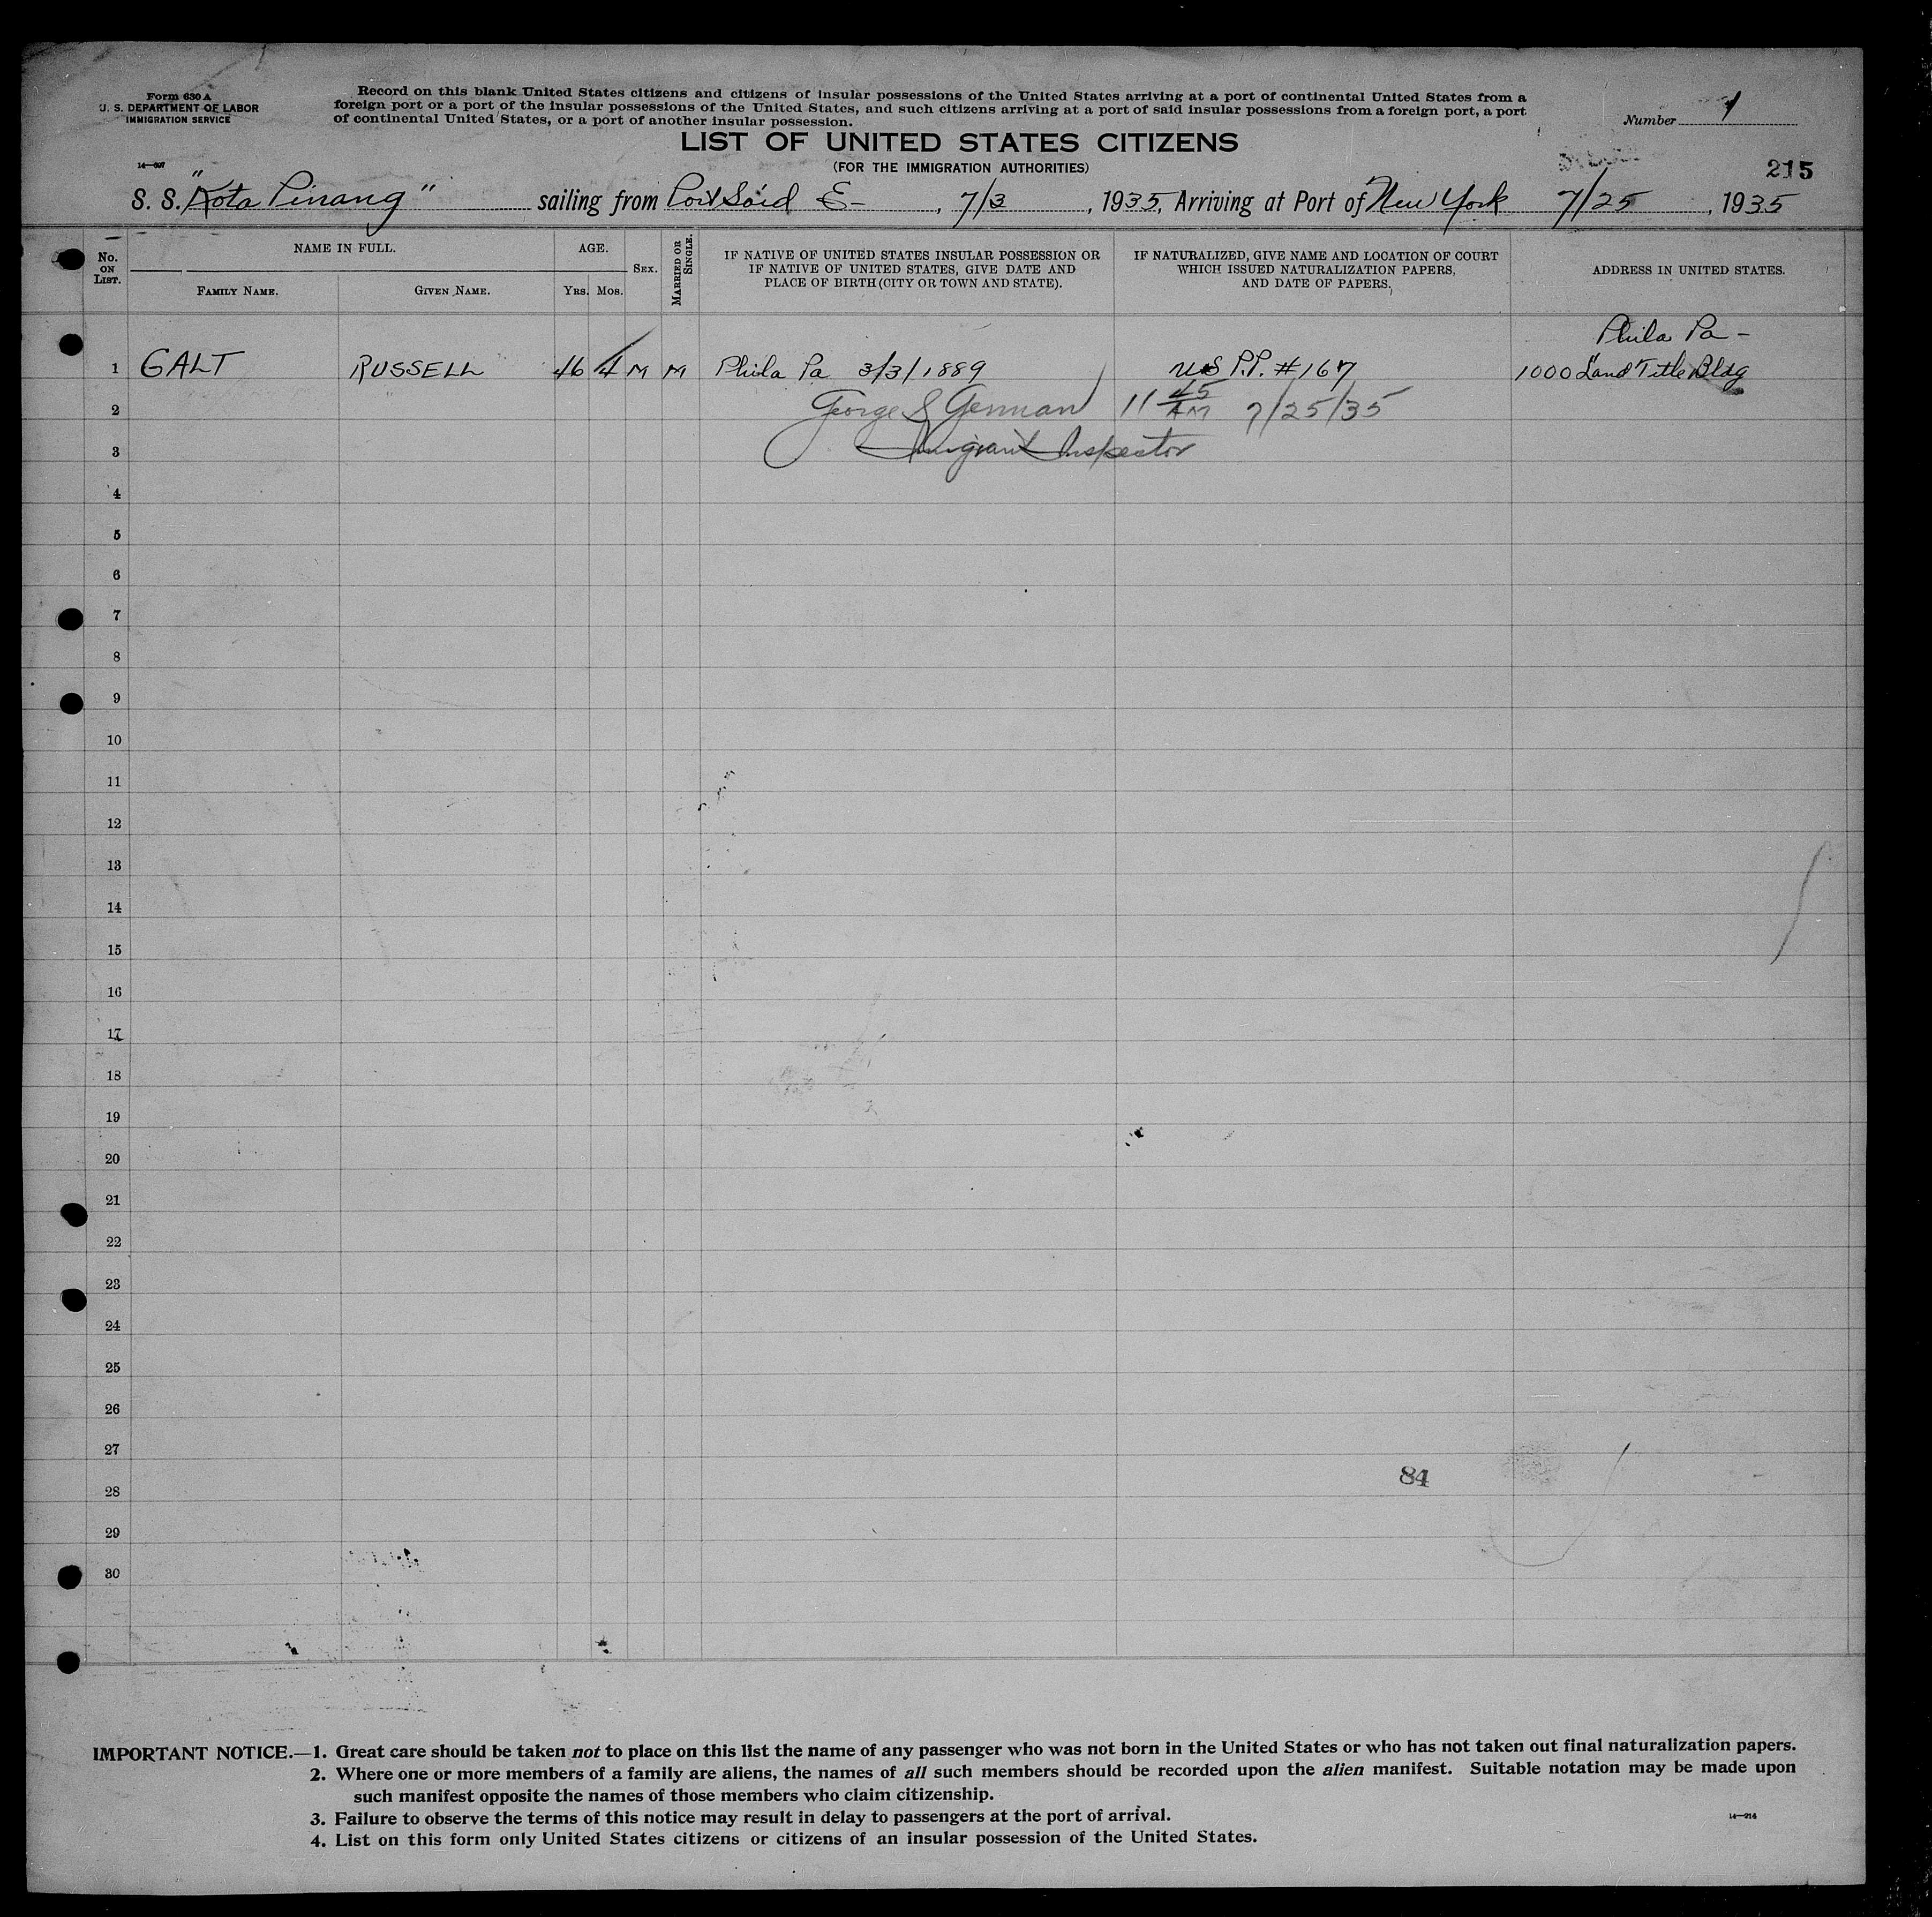 Form 630 A
U. S. DEPARTMENT OF LABOR
IMMIGRATION SERVICE
Record on this blank United States citizens and citizens of insular possessions of the United States arriving at a port of continental United States from a
foreign port or a port of the insular possessions of the United States, and such citizens arriving at a port of said insular possessions from a foreign port, a port
of continental United States, or a port of another insular possession.
Number 1
LIST OF UNITED STATES CITIZENS
(FOR THE IMMIGRATION AUTHORITIES)
215
S. S. "Kota Pinang" sailing from Port Said E- , 7/3 , 1935, Arriving at Port of New York 7/25 , 1935
No. ON LIST.
NAME IN FULL.
FAMILY NAME.
GIVEN NAME.
AGE.
YRS. MOS.
SEX.
MARRIED OR SINGLE.
IF NATIVE OF UNITED STATES INSULAR POSSESSION OR
IF NATIVE OF UNITED STATES, GIVE DATE AND
PLACE OF BIRTH (CITY OR TOWN AND STATE).
IF NATURALIZED, GIVE NAME AND LOCATION OF COURT
WHICH ISSUED NATURALIZATION PAPERS,
AND DATE OF PAPERS.
ADDRESS IN UNITED STATES.
Phila Pa -
1 GALT RUSSELL 46 4 M M Phila Pa 3/3/1889 US P.P. #167 1000 Land Title Bldg
2 George S German 11 45 AM 7/25/35
3 Immigrant Inspector
4
5
6
7
8
9
10
11
12
13
14
15
16
17
18
19
20
21
22
23
24
25
26
27
84
28
29
30
IMPORTANT NOTICE.—1. Great care should be taken not to place on this list the name of any passenger who was not born in the United States or who has not taken out final naturalization papers.
2. Where one or more members of a family are aliens, the names of all such members should be recorded upon the alien manifest. Suitable notation may be made upon
such manifest opposite the names of those members who claim citizenship.
3. Failure to observe the terms of this notice may result in delay to passengers at the port of arrival.
4. List on this form only United States citizens or citizens of an insular possession of the United States.